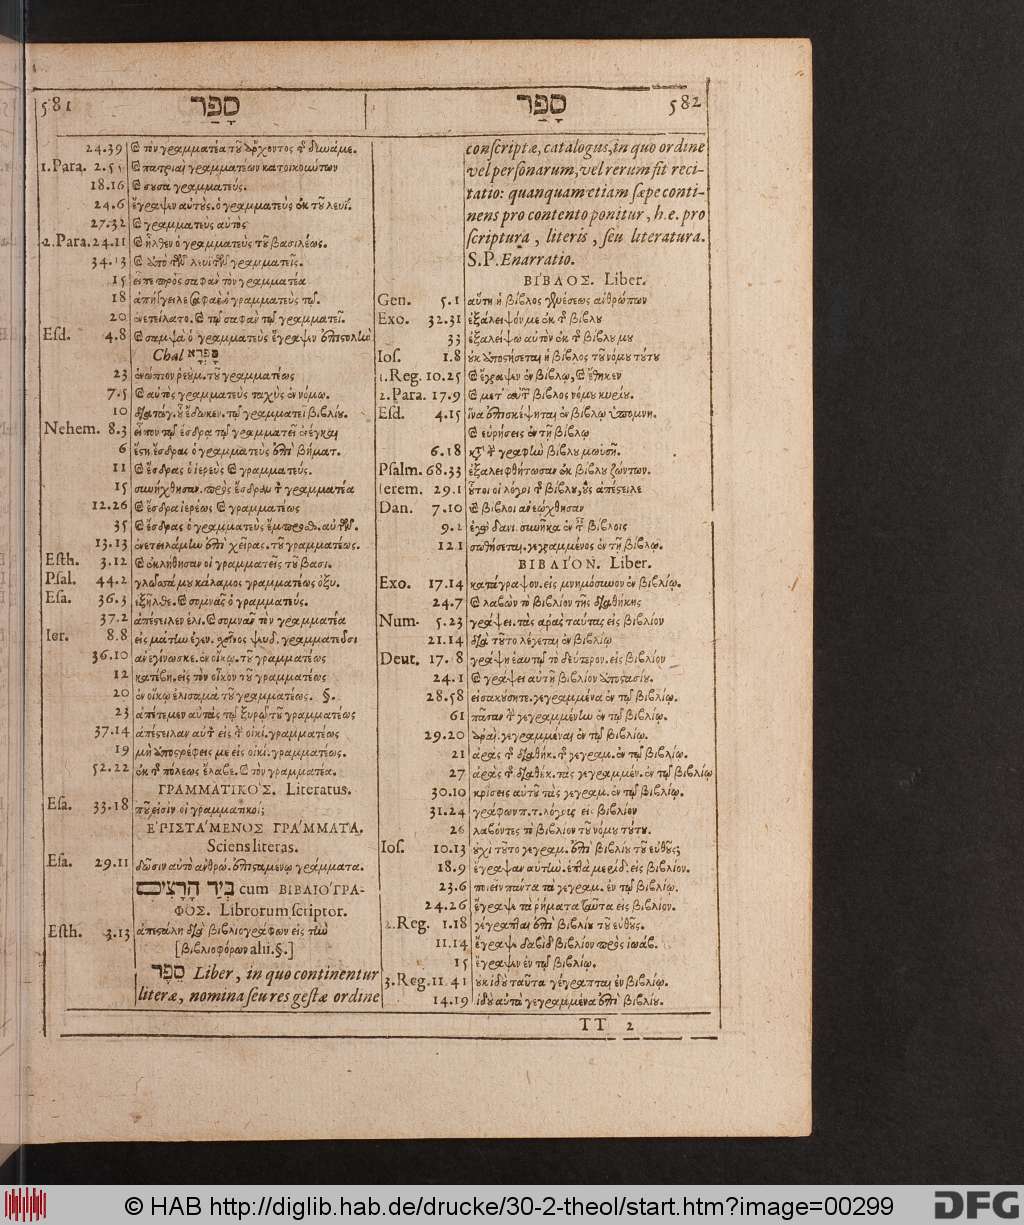 581 סָפַר
24.39 καὶ τὸν γραμματέα τοῦ ἄρχοντος τῆς δυνάμε.
1.Para. 2.5 καὶ πατριαὶ γραμματέων κατοικοιώτων
18.16 καὶ σουσα γραμματεύς.
24.6 ἔγραψεν αὐτοὺς. ὁ γραμματεὺς ἐκ τοῦ λευί.
27.32 καὶ γραμματεὺς αὐτὸς
2.Para. 24.11 καὶ ἦλθεν ὁ γραμματεὺς τοῦ βασιλέως.
34.13 καὶ ἀπὸ τῶν λευιτῶν γραμματεῖς.
15 εἶπε πρὸς σαφαν τὸν γραμματέα
18 ἀπήγγειλε σαφαὲ ὁ γραμματεὺς τῷ.
20 ἐνετείλατο. καὶ τῷ σαφαν τῷ γραμματεῖ.
Esd. 4.8 καὶ σαμψὰ ὁ γραμματεὺς ἔγραψεν ἐπιστολὴν
Chal סָפְרָא
23 ἐνώπιον ῥεουμ. τοῦ γραμματέως
7.5 καὶ αὐτὸς γραμματεὺς ταχὺς ἐν νόμῳ.
10 διαταγ. οὗ ἔδωκεν. τῷ γραμματεῖ βιβλίου.
Nehem. 8.3 εἶπον τῷ ἔσδρα τῷ γραμματεῖ ἐνέγκαι
6 ἔστη ἔσδρας ὁ γραμματεὺς ἐπὶ βήματ.
11 καὶ ἔσδρας ὁ ἱερεὺς καὶ γραμματεύς.
15 συνήχθησαν. πρὸς ἔσδραν τὸν γραμματέα
12.26 καὶ ἔσδρα ἱερέως καὶ γραμματέως
35 καὶ ἔσδρας ὁ γραμματεὺς ἔμπροσθ. αὐτῶν.
13.13 ἐνετειλάμην ἐπὶ χεῖρας. τοῦ γραμματέως.
Esth. 3.12 καὶ ἐκλήθησαν οἱ γραμματεῖς τοῦ βασι.
Psal. 44.2 γλῶσσά μου κάλαμος γραμματέως ὀξυ.
Esa. 36.3 ἐξῆλθε. καὶ σομνας ὁ γραμματεύς.
37.2 ἀπέστειλεν ἐλι. καὶ σομναν τὸν γραμματέα
Ier. 8.8 εἰς μάτην ἐγεν. σχοῖνος ψευδ. γραμματεῦσι
36.10 ἀνεγίνωσκε. ἐν οἴκῳ. τοῦ γραμματέως
12 κατέβη. εἰς τὸν οἶκον τοῦ γραμματέως
20 ἐν οἴκῳ ἐλισαμὰ τοῦ γραμματέως. §.
23 ἀπέτεμεν αὐτὰς τῷ ξυρῷ τοῦ γραμματέως
37.14 ἀπέστειλαν αὐτ. εἰς τὴν οἰκί. γραμματέως
19 μὴ ἀποστρέψεις με εἰς οἰκί. γραμματέως.
52.22 ἐκ τῆς πόλεως ἔλαβε. καὶ τὸν γραμματέα.
ΓΡΑΜΜΑΤΙΚΟ΄Σ. Literatus.
Esa. 33.18 ποῦ εἰσὶν οἱ γραμματικοί;
ΕΡΙΣΤΑ΄ΜΕΝΟΣ ΓΡΑ΄ΜΜΑΤΑ.
Sciens literas.
Esa. 29.11 δῶσιν αὐτὸ ἀνθρώ. ἐπισταμένῳ γράμματα.
בְּיַד הָרָצִים cum ΒΙΒΛΙΟΓΡΑ-
ΦΟΣ. Librorum scriptor.
Esth. 3.13 ἀπεστάλη διὰ βιβλιογράφων εἰς τὴν
[βιβλιοφόρων alii.§.]
סֵפֶר Liber, in quo continentur
literæ, nomina seu res gestæ ordine
סָפַר 582
conscriptæ, catalogus, in quo ordine
vel personarum, vel rerum fit reci-
tatio: quanquam etiam sæpe conti-
nens pro contento ponitur, h.e. pro
scriptura, literis, seu literatura.
S.P. Enarratio.
ΒΙ΄ΒΛΟΣ. Liber.
Gen. 5.1 αὕτη ἡ βίβλος γενέσεως ἀνθρώπων
Exo. 32.31 ἐξάλειψόν με ἐκ τῆς βίβλου
33 ἐξαλείψω αὐτὸν ἐκ τῆς βίβλου μου
Ios. 1.8 οὐκ ἀποστήσεται ἡ βίβλος τοῦ νόμου τούτου
1.Reg. 10.25 καὶ ἔγραψεν ἐν βίβλῳ, καὶ ἔθηκεν
2.Para. 17.9 καὶ μετ' αὐτῶν βίβλος νόμου κυρίου.
Esd. 4.15 ἵνα ἐπισκέψηται ἐν βίβλῳ ὑπομνη.
καὶ εὑρήσεις ἐν τῇ βίβλῳ
6.18 κατὰ τὴν γραφὴν βίβλου μωυσῆ.
Psalm. 68.33 ἐξαλειφθήτωσαν ἐκ βίβλου ζώντων.
Ierem. 29.1 οὗτοι οἱ λόγοι τῆς βίβλου, οὓς ἀπέστειλε
Dan. 7.10 καὶ βίβλοι ἀνεῴχθησαν
9.2 ἐγὼ δανι. συνῆκα ἐν ταῖς βίβλοις
12.1 σωθήσεται. γεγραμμένος ἐν τῇ βίβλῳ.
ΒΙΒΛΙ΄ΟΝ. Liber.
Exo. 17.14 κατάγραψον. εἰς μνημόσυνον ἐν βιβλίῳ.
24.7 καὶ λαβὼν τὸ βιβλίον τῆς διαθήκης
Num. 5.23 γράψει. τὰς ἀρὰς ταύτας εἰς βιβλίον
21.14 διὰ τοῦτο λέγεται ἐν βιβλίῳ
Deut. 17.18 γράψῃ ἑαυτῷ τὸ δεύτερον. εἰς βιβλίον
24.1 καὶ γράψει αὐτῇ βιβλίον ἀποστασίου.
28.58 εἰσακούσητε. γεγραμμένα ἐν τῷ βιβλίῳ.
61 πᾶσαν τὴν γεγραμμένην ἐν τῷ βιβλίῳ.
29.20 ἀραὶ. γεγραμμέναι ἐν τῷ βιβλίῳ.
21 ἀρὰς τῆς διαθήκ. τὰς γεγραμ. ἐν τῷ βιβλίῳ.
27 ἀρὰς τῆς διαθήκ. τὰς γεγραμμέν. ἐν τῷ βιβλίῳ
30.10 κρίσεις αὐτοῦ τὰς γεγραμ. ἐν τῷ βιβλίῳ.
31.24 γράφων π. τ. λόγους εἰς βιβλίον
26 λαβόντες τὸ βιβλίον τοῦ νόμου τούτου.
Ios. 10.13 οὐχὶ τοῦτο γεγραμ. ἐπὶ βιβλίου τοῦ εὐθοῦς;
18.9 ἔγραψαν αὐτὴν. ἑπτὰ μερίδ. εἰς βιβλίον.
23.6 ποιεῖν πάντα τὰ γεγραμ. ἐν τῷ βιβλίῳ.
24.26 ἔγραψε τὰ ῥήματα ταῦτα εἰς βιβλίον.
2.Reg. 1.18 γέγραπται ἐπὶ βιβλίου τοῦ εὐθοῦς.
11.14 ἔγραψε δαβὶδ βιβλίον πρὸς ἰωάβ.
15 ἔγραψεν ἐν τῷ βιβλίῳ.
3.Reg. 11.41 οὐκ ἰδοὺ ταῦτα γέγραπται ἐν βιβλίῳ.
14.19 ἰδοὺ αὐτὰ γεγραμμένα ἐπὶ βιβλίου.
TT 2
© HAB http://diglib.hab.de/drucke/30-2-theol/start.htm?image=00299
DFG